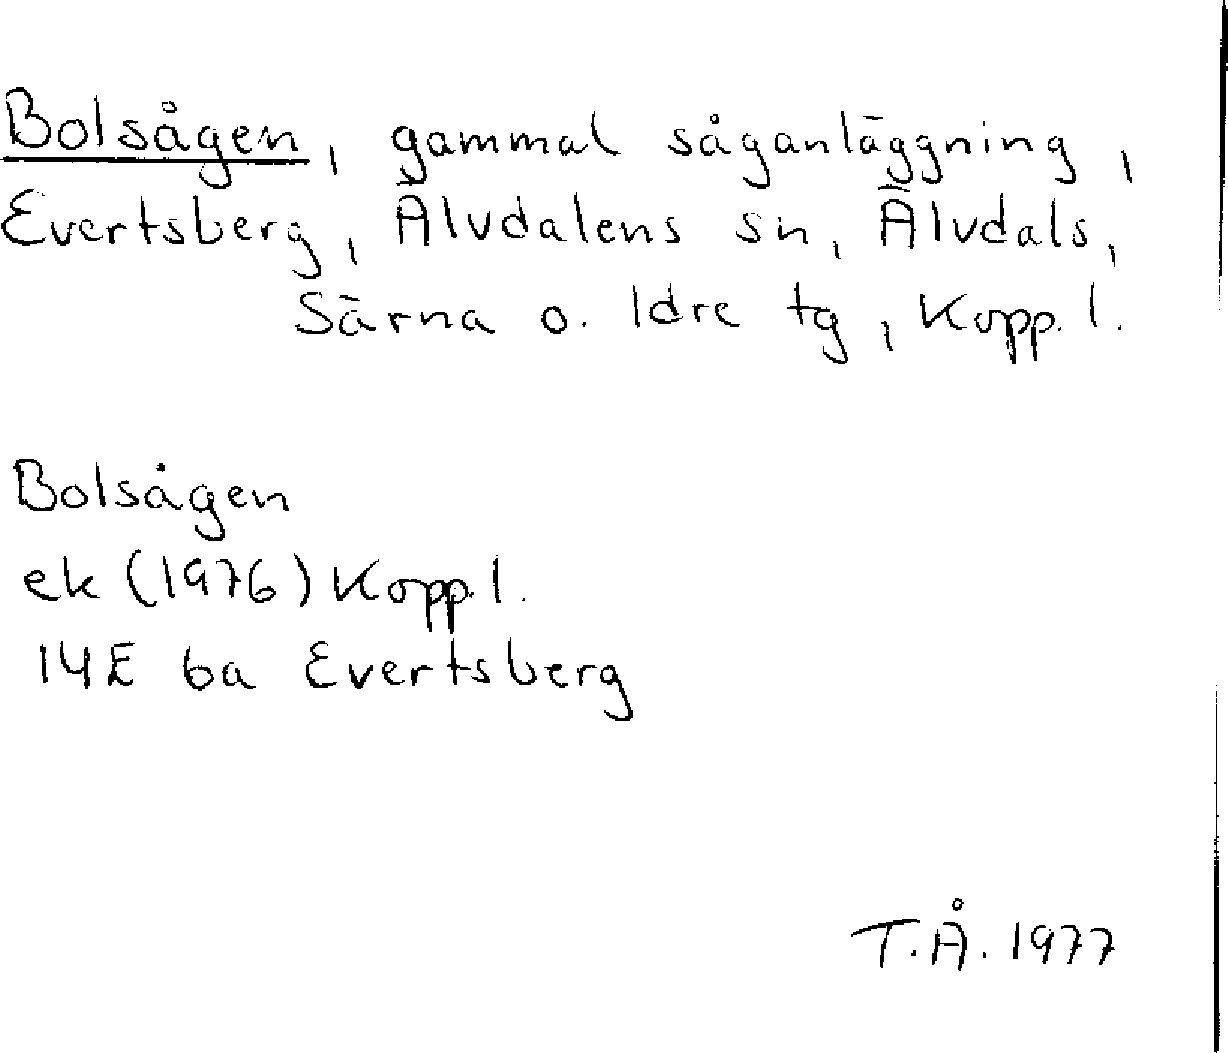 Bolsågen, gammal såganläggning,
Evertsberg, Älvdalens sn, Älvdals,
Särna o. Idre tg, Kopp. l.
Bolsågen
ek (1976) Kopp. l.
14E 6a Evertsberg
T.Å. 1977